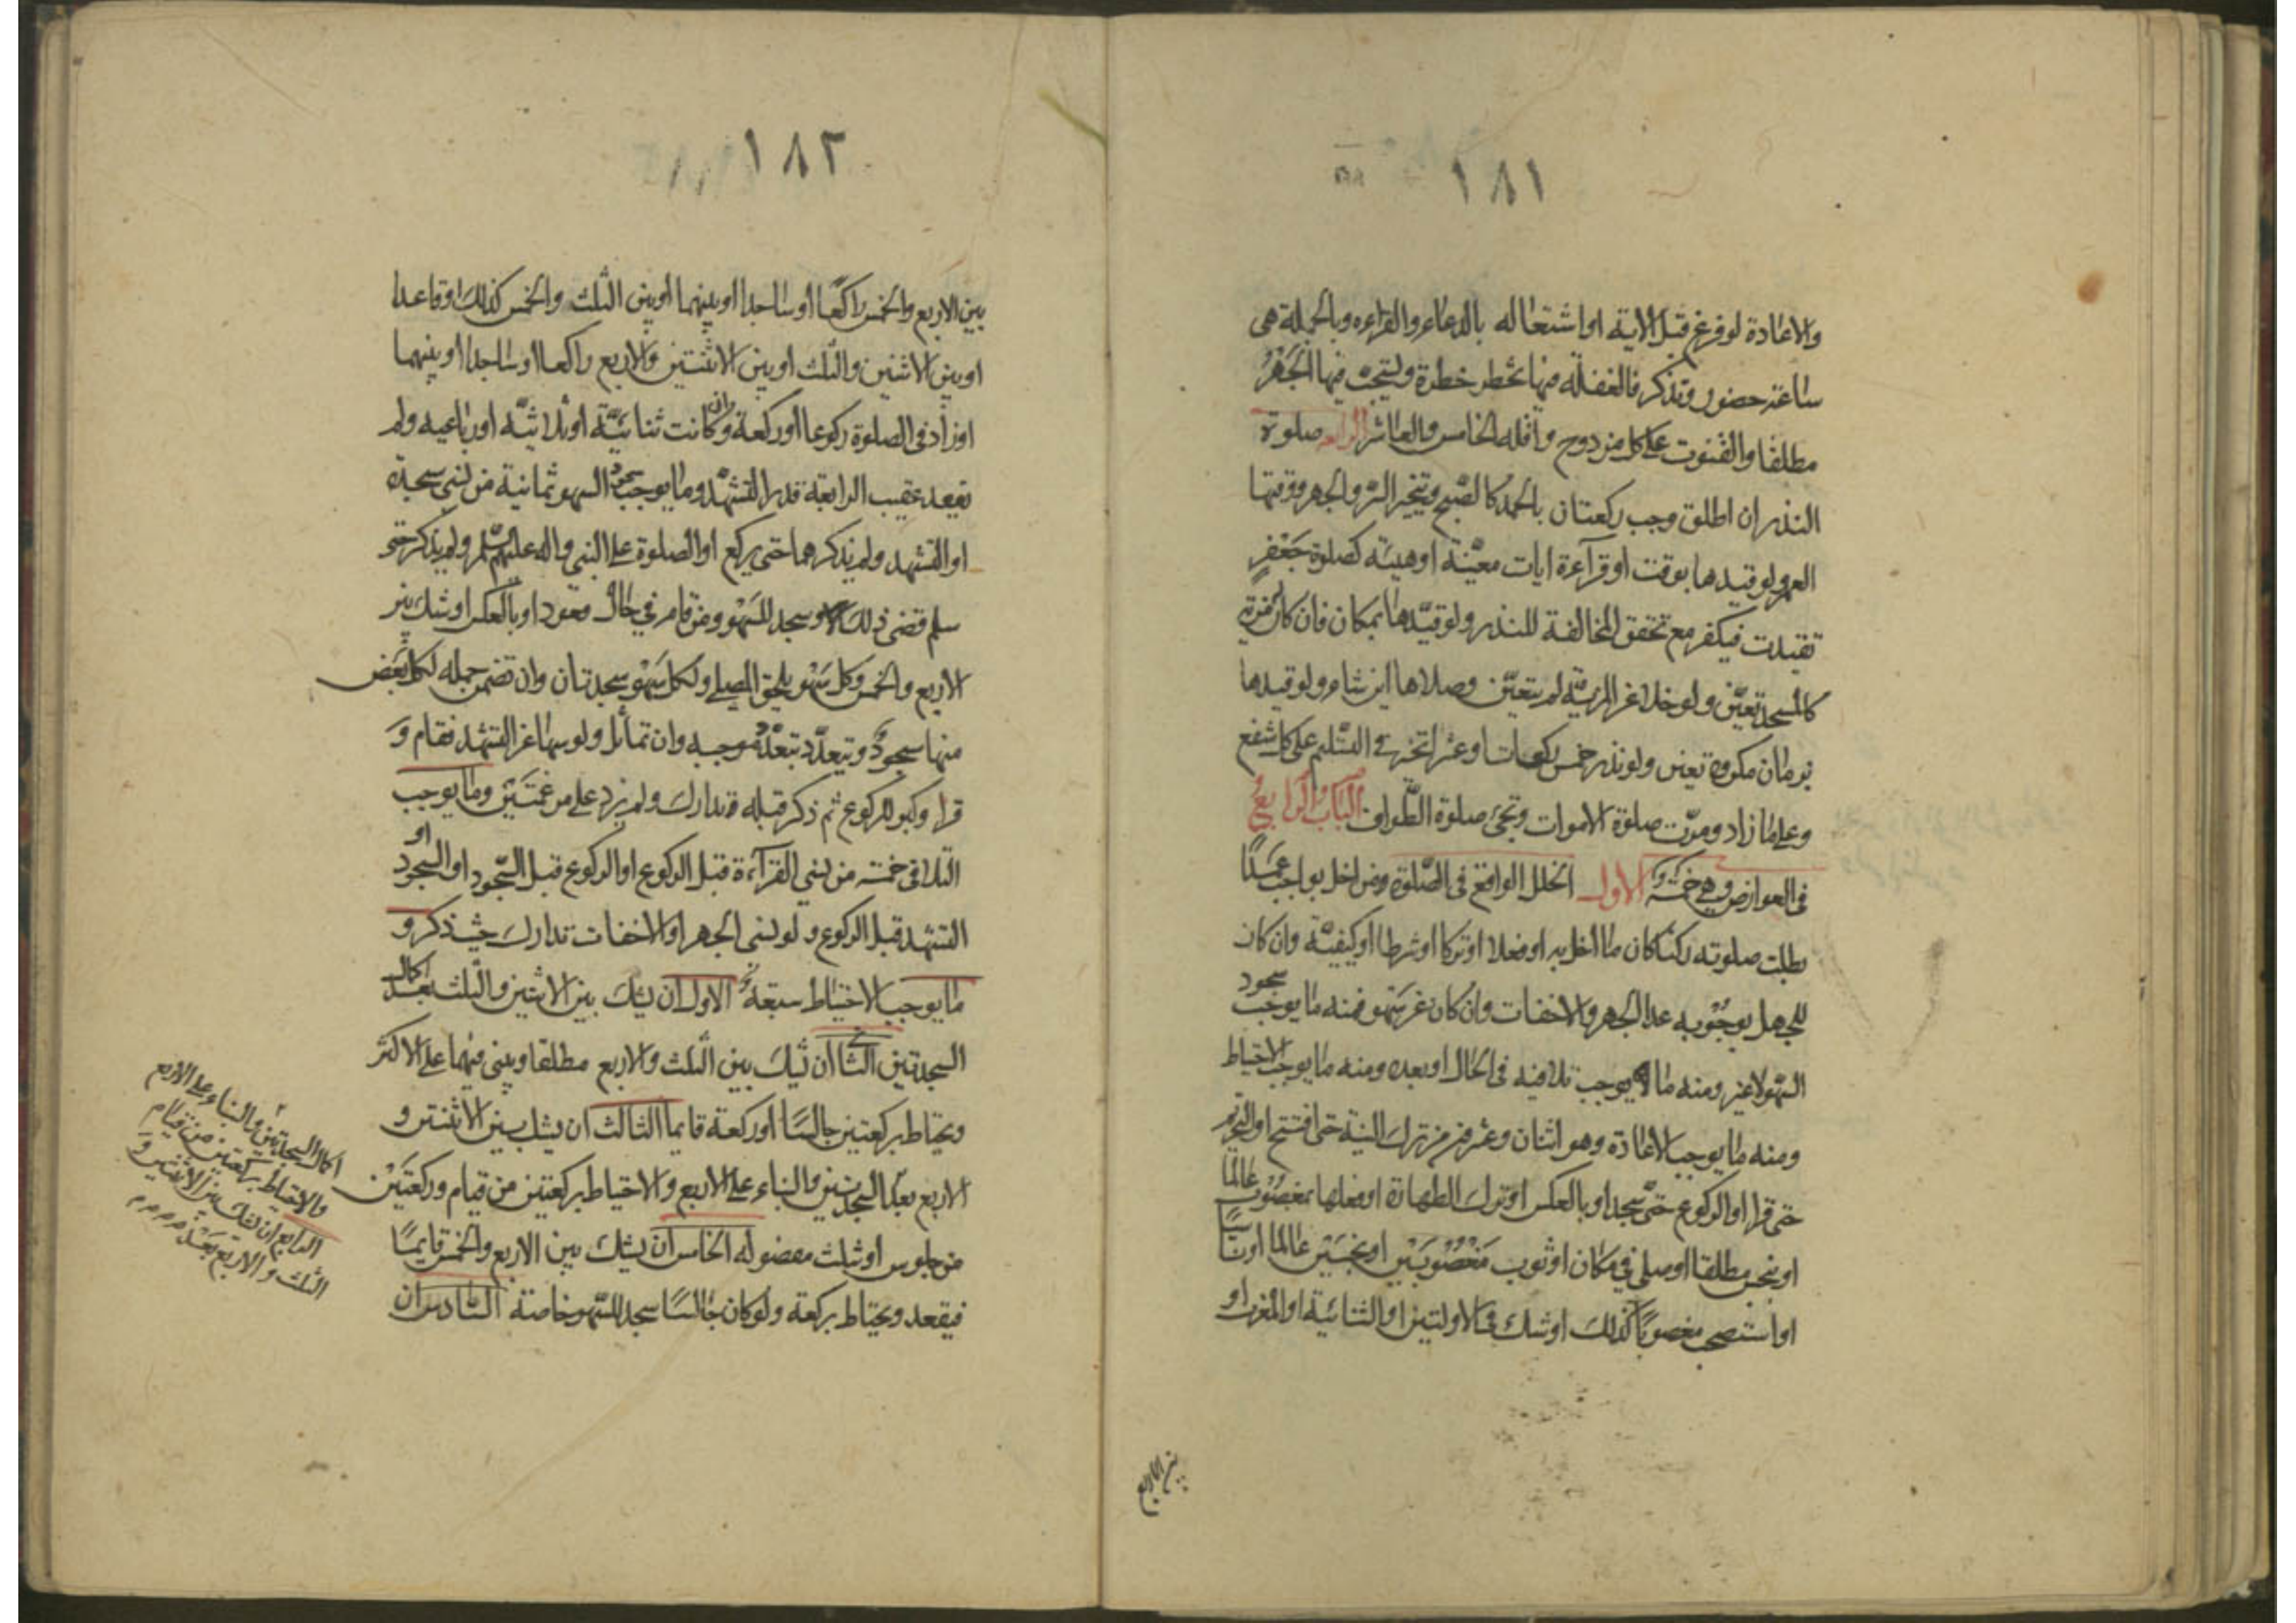 ١٨١
والاعادة لو فرغ قبل الاية او اشتغاله بالدعاء والقراءه وبالجملة هى
ساعة حضور وتذكر فالغفلة فيها تخطر خطرة ويستحب فيها الجهر
مطلقا والقنوت على كل مزدوج واقله الخامس والعاشر الرابعه صلوة
النذر ان اطلق وجب ركعتان بالحمد كالصبح ويتخير السر والجهر ووقتها
العمر ولو قيدها بوقت او قراءة ايات معينة او هيئة كصلوة جعفر
تقيدت فيكفر مع تحقق المخالفة للنذر ولو قيدها بمكان فان كان له مزية
كالمسجد تعين ولو خلا عن المزية لم يتعين وصلاها اين شاء ولو قيدها
بزمان مكروه تعين ولو نذر خمس ركعات او عشرا تخر فى التسليم على كل شفع
وعلى ما زاد ومرت صلوة الاموات وتجئ صلوة الطواف الباب الرابع
فى العوارض وهى خمسة الاول الخلل الواقع فى الصلوة ومن اخل بواجب عمدا
بطلت صلوته ركنا كان ما اخل به او فعلا او تركا او شرطا او كيفية وان كان
للجهل بوجوبه عدا الجهر والاخفات وان كان عن سهو فمنه ما يوجب سجود
السهو لا غير ومنه ما يوجب تلافيه فى الحال او بعده ومنه ما يوجب الاحتياط
ومنه ما يوجب الاعادة وهو اثنان وعشرون من ترك النية حتى افتتح او التحريم
حتى قرا او الركوع حتى سجد او بالعكس او ترك الطهارة او فعلها بمغصوب عالما
او بنجس مطلقا او صلى فى مكان او ثوب مغصوبين او نجسين عالما او ناسيا
او استصحب مغصوبا كذلك او شك فى الاولتين او الثنائية او المغرب او
بين الاربع
١٨٢
بين الاربع والخمس راكعا او ساجدا او بينهما او بين الثلث والخمس كذلك او قاعدا
او بين الاثنين والثلث او بين الاثنتين والاربع راكعا او ساجدا او بينهما
او زاد فى الصلوة ركوعا او ركعة وان كانت ثنائية او ثلاثية او رباعيه ولم
يقعد عقيب الرابعة قدر التشهد وما يوجب سجود السهو ثمانية من نسى سجدة
او التشهد ولم يذكرهما حتى يركع او الصلوة على النبى واله عليهم السلم ولم يذكر حتى
سلم قضى ذلك وسجد للسهو ومن قام فى حال قعود او بالعكس او شك بين
الاربع والخمس وكل سهو يلحق المصلى ولكل سهو سجدتان وان تضمن جمله لكل بعض
منها سجود ويتعدد بتعدد موجبه وان تماثل ولو سها عن التشهد فقام و
قرا وكبر للركوع ثم ذكر قبله تدارك ولم يزد على مرغمتين وما يوجب
التلافى خمسة من نسى القراءة قبل الركوع او الركوع قبل السجود او السجود او
التشهد قبل الركوع ولو نسى الجهر او الاخفات تدارك حيث ذكر و
ما يوجب الاحتياط سبعة الاول ان يشك بين الاثنين والثلث بعد اكمال
السجدتين الثانى ان يشك بين الثلث والاربع مطلقا ويبنى فيهما على الاكثر
ويحتاط بركعتين جالسا او ركعة قايما الثالث ان يشك بين الاثنتين و
الاربع بعد السجدتين والبناء على الاربع والاحتياط بركعتين من قيام وركعتين
من جلوس او ثلث مفصوله الخامس ان يشك بين الاربع والخمس قايما
فيقعد ويحتاط بركعة ولو كان جالسا سجد للسهو خاصة السادس ان
اكمال السجدتين والبناء على الاربع
والاحتياط بركعتين من قيام
الرابع ان يشك بين الاثنتين و
الثلث والاربع بعد